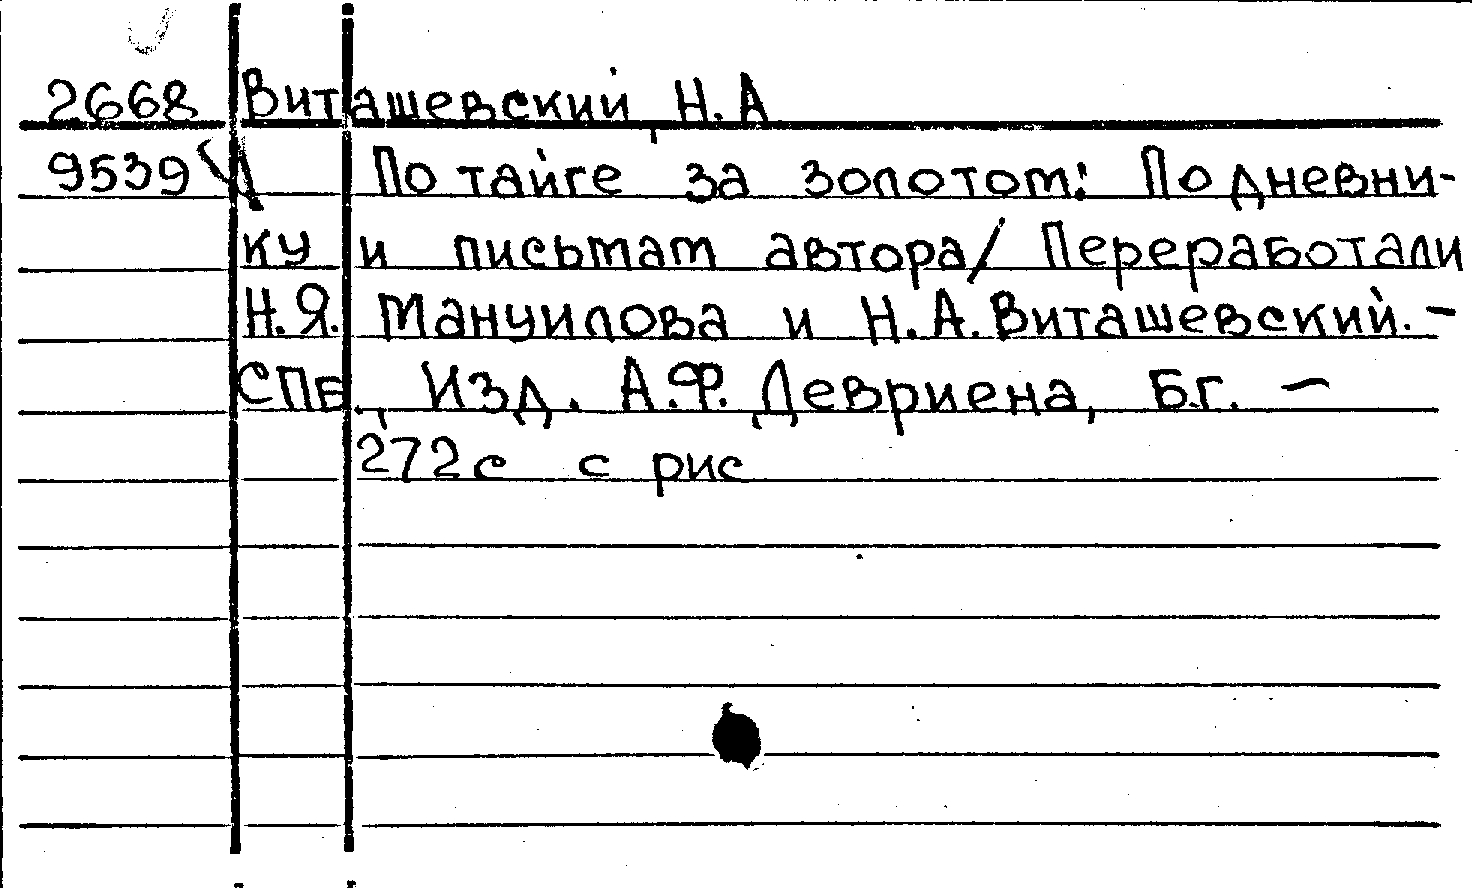 2668 Виташевский, Н.А
9539 По тайге за золотом: По дневни-
ку и письмам автора/ Переработали
Н.Я. Мануилова и Н.А. Виташевский. -
СПБ., Изд. А.Ф. Девриена, Б.г. -
272с с рис